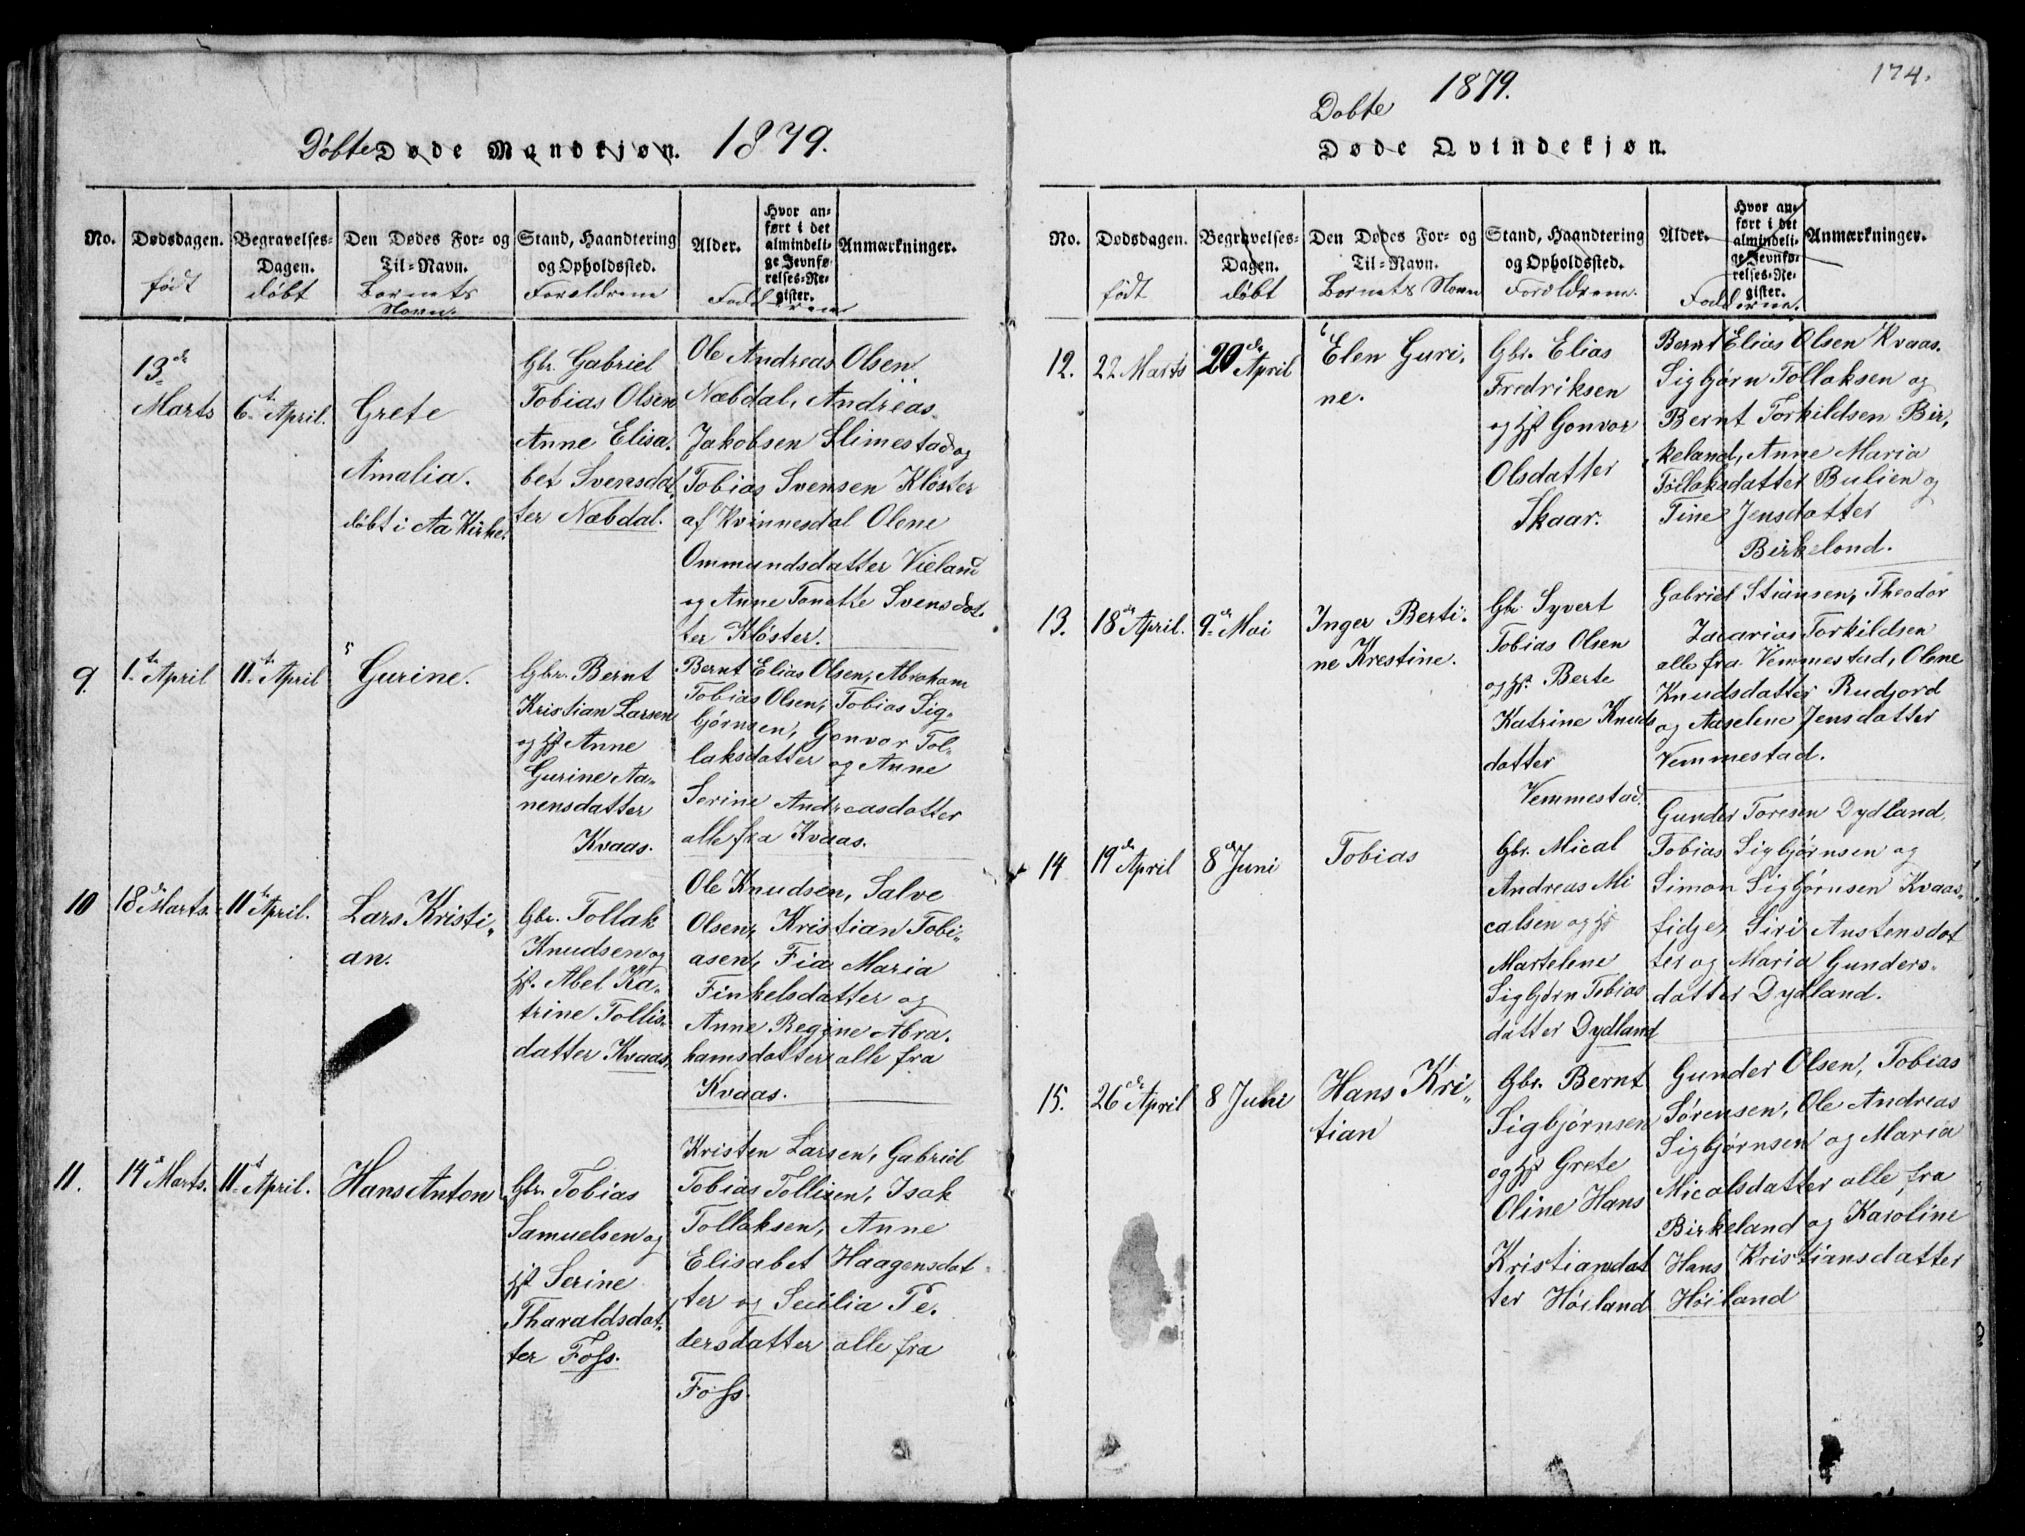 Døbte Døde Mandkjøn. 1879.
No.
Dødsdagen.
født
Begravelses-
Dagen.
døbt
Den Dødes For- og
Til-Navn.
Barnets
Navn.
Stand, Haandtering
og Opholdssted.
Forældrene
Alder.
Hvor an-
ført i det
almindeli-
ge Jevnfø-
relses-Re-
gister.
Anmærkninger.
Fadderne
13de
Marts
6te April.
Grete
Amalia.
døbt i Aa Kirke.
Gbr. Gabriel
Tobias Olsen
Anne Elisa-
bet Svensdat-
ter Næbdal.
Ole Andreas Olsen
Næbdal, Andreas
Jakobsen Slimestad og
Tobias Svensen Kløster
af Kvinnesdal Olene
Ommundsdatter Vieland
og Anne Tonette Svensdat-
ter Kløster.
9.
1te April
11te April
Gurine.
Gbr. Bernt
Kristian Larsen
og Hst Anne
Gurine Aa-
nensdatter
Kvaas.
Bernt Elias Olsen, Abraham
Tobias Olsen, Tobias Sig-
bjørnsen, Gonvor Tol-
laksdatter og Anne
Serine Andreasdatter
alle fra Kvaas.
10
18de Marts.
11te April.
Lars Kristi-
an.
Gbr. Tollak
Knudsen og
Hst. Abel Ka-
trine Tollis-
datter Kvaas.
Ole Knudsen, Salve
Olsen, Kristian Tobi-
asen, Fia Maria
Finkelsdatter og
Anne Regine Abra-
hamsdatter alle fra
Kvaas.
11.
14de Marts.
11te April.
Hans Anton
Gbr. Tobias
Samuelsen og
Hst Serine
Tharaldsdat-
ter Foss.
Kristen Larsen, Gabriel
Tobias Tollisen, Isak
Tollaksen, Anne
Elisabet Haagensdat-
ter og Secilia Pe-
dersdatter alle fra
Foss.
174.
1879.
Døbte
Døde Qvindekjøn.
No.
Dødsdagen.
født
Begravelses-
Dagen.
døbt
Den Dødes For- og
Til-Navn.
Barnets Navn
Stand, Haandtering
og Opholdssted.
Forældrene.
Alder.
Hvor an-
ført i det
almindeli-
ge Jevnfø-
relses-Re-
gister.
Anmærkninger.
Fadderne.
12.
22 Marts
20de April
Elen Guri-
ne.
Gbr. Elias
Fredriksen
og Hst Gonvor
Olsdatter
Skaar.
Bernt Elias Olsen Kvaas.
Sigbjørn Tollaksen og
Bernt Torkildsen Bir-
keland, Anne Maria
Tollaksdatter Bulien og
Tine Jensdatter
Birkeland.
13.
18de April.
9de Mai
Inger Berti-
ne Krestine.
Gbr. Syvert
Tobias Olsen
og Hst. Berte
Katrine Knuds
datter
Vemmestad.
Gabriel Stiansen, Theodor
Zacarias Torkildsen
alle fra Vemmestad, Olene
Knudsdatter Rudjord
og Aaselene Jensdatter
Vemmestad.
14
19de April
8de Juni
Tobias
Gbr. Mical
Andreas Mi
calsen og Hst
Martelene
Sigbjørn Tobias
datter Dydland
Gunder Toresen Dydland,
Tobias Sigbjørnsen og
Simon Sigbjørnsen Kvaas-
fidje, Siri Austensdat
ter og Maria Gunders-
datter Dydland.
15.
26de April
8 Juni
Hans Kri-
tian
Gbr. Bernt
Sigbjørnsen
og Hst Grete
Oline Hans
Kristiansdat
ter Høiland
Gunder Olsen, Tobias
Sørensen, Ole Andreas
Sigbjørnsen og Maria
Micalsdatter alle fra
Birkeland og Karoline
Hans Kristiansdatter
Høiland